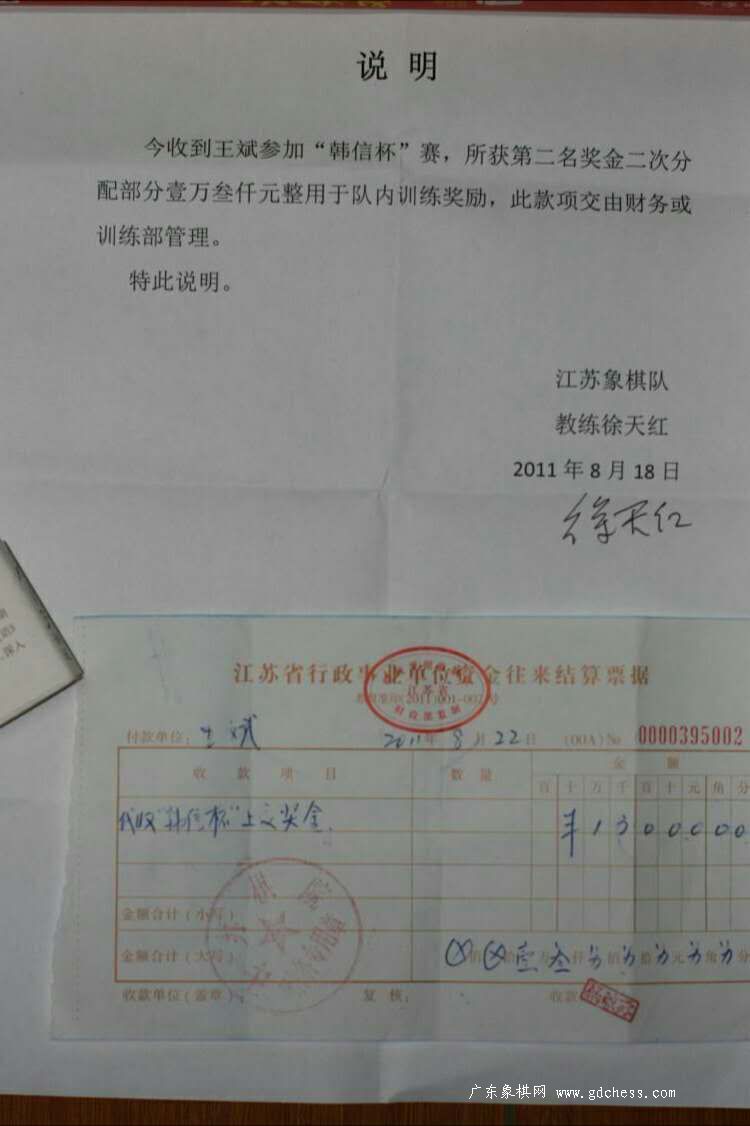 说 明
今收到王斌参加“韩信杯”赛，所获第二名奖金二次分
配部分壹万叁仟元整用于队内训练奖励，此款项交由财务或
训练部管理。
特此说明。
江苏象棋队
教练徐天红
2011 年 8 月 18 日
徐天红
江苏省行政事业单位资金往来结算票据
江苏省
财政部监制
付款单位：王斌 2011年 8月 22日 (00A)№ 0000395002
收款项目 数量 金额
百 十 万 千 百 十 元 角 分
代收“韩信杯”上交奖金 ¥1300000
金额合计（小写）
金额合计（大写） ⊗佰⊗拾壹万叁仟 佰 拾 元 角 分
收款单位（盖章） 复核： 收款
广东象棋网 www.gdchess.com